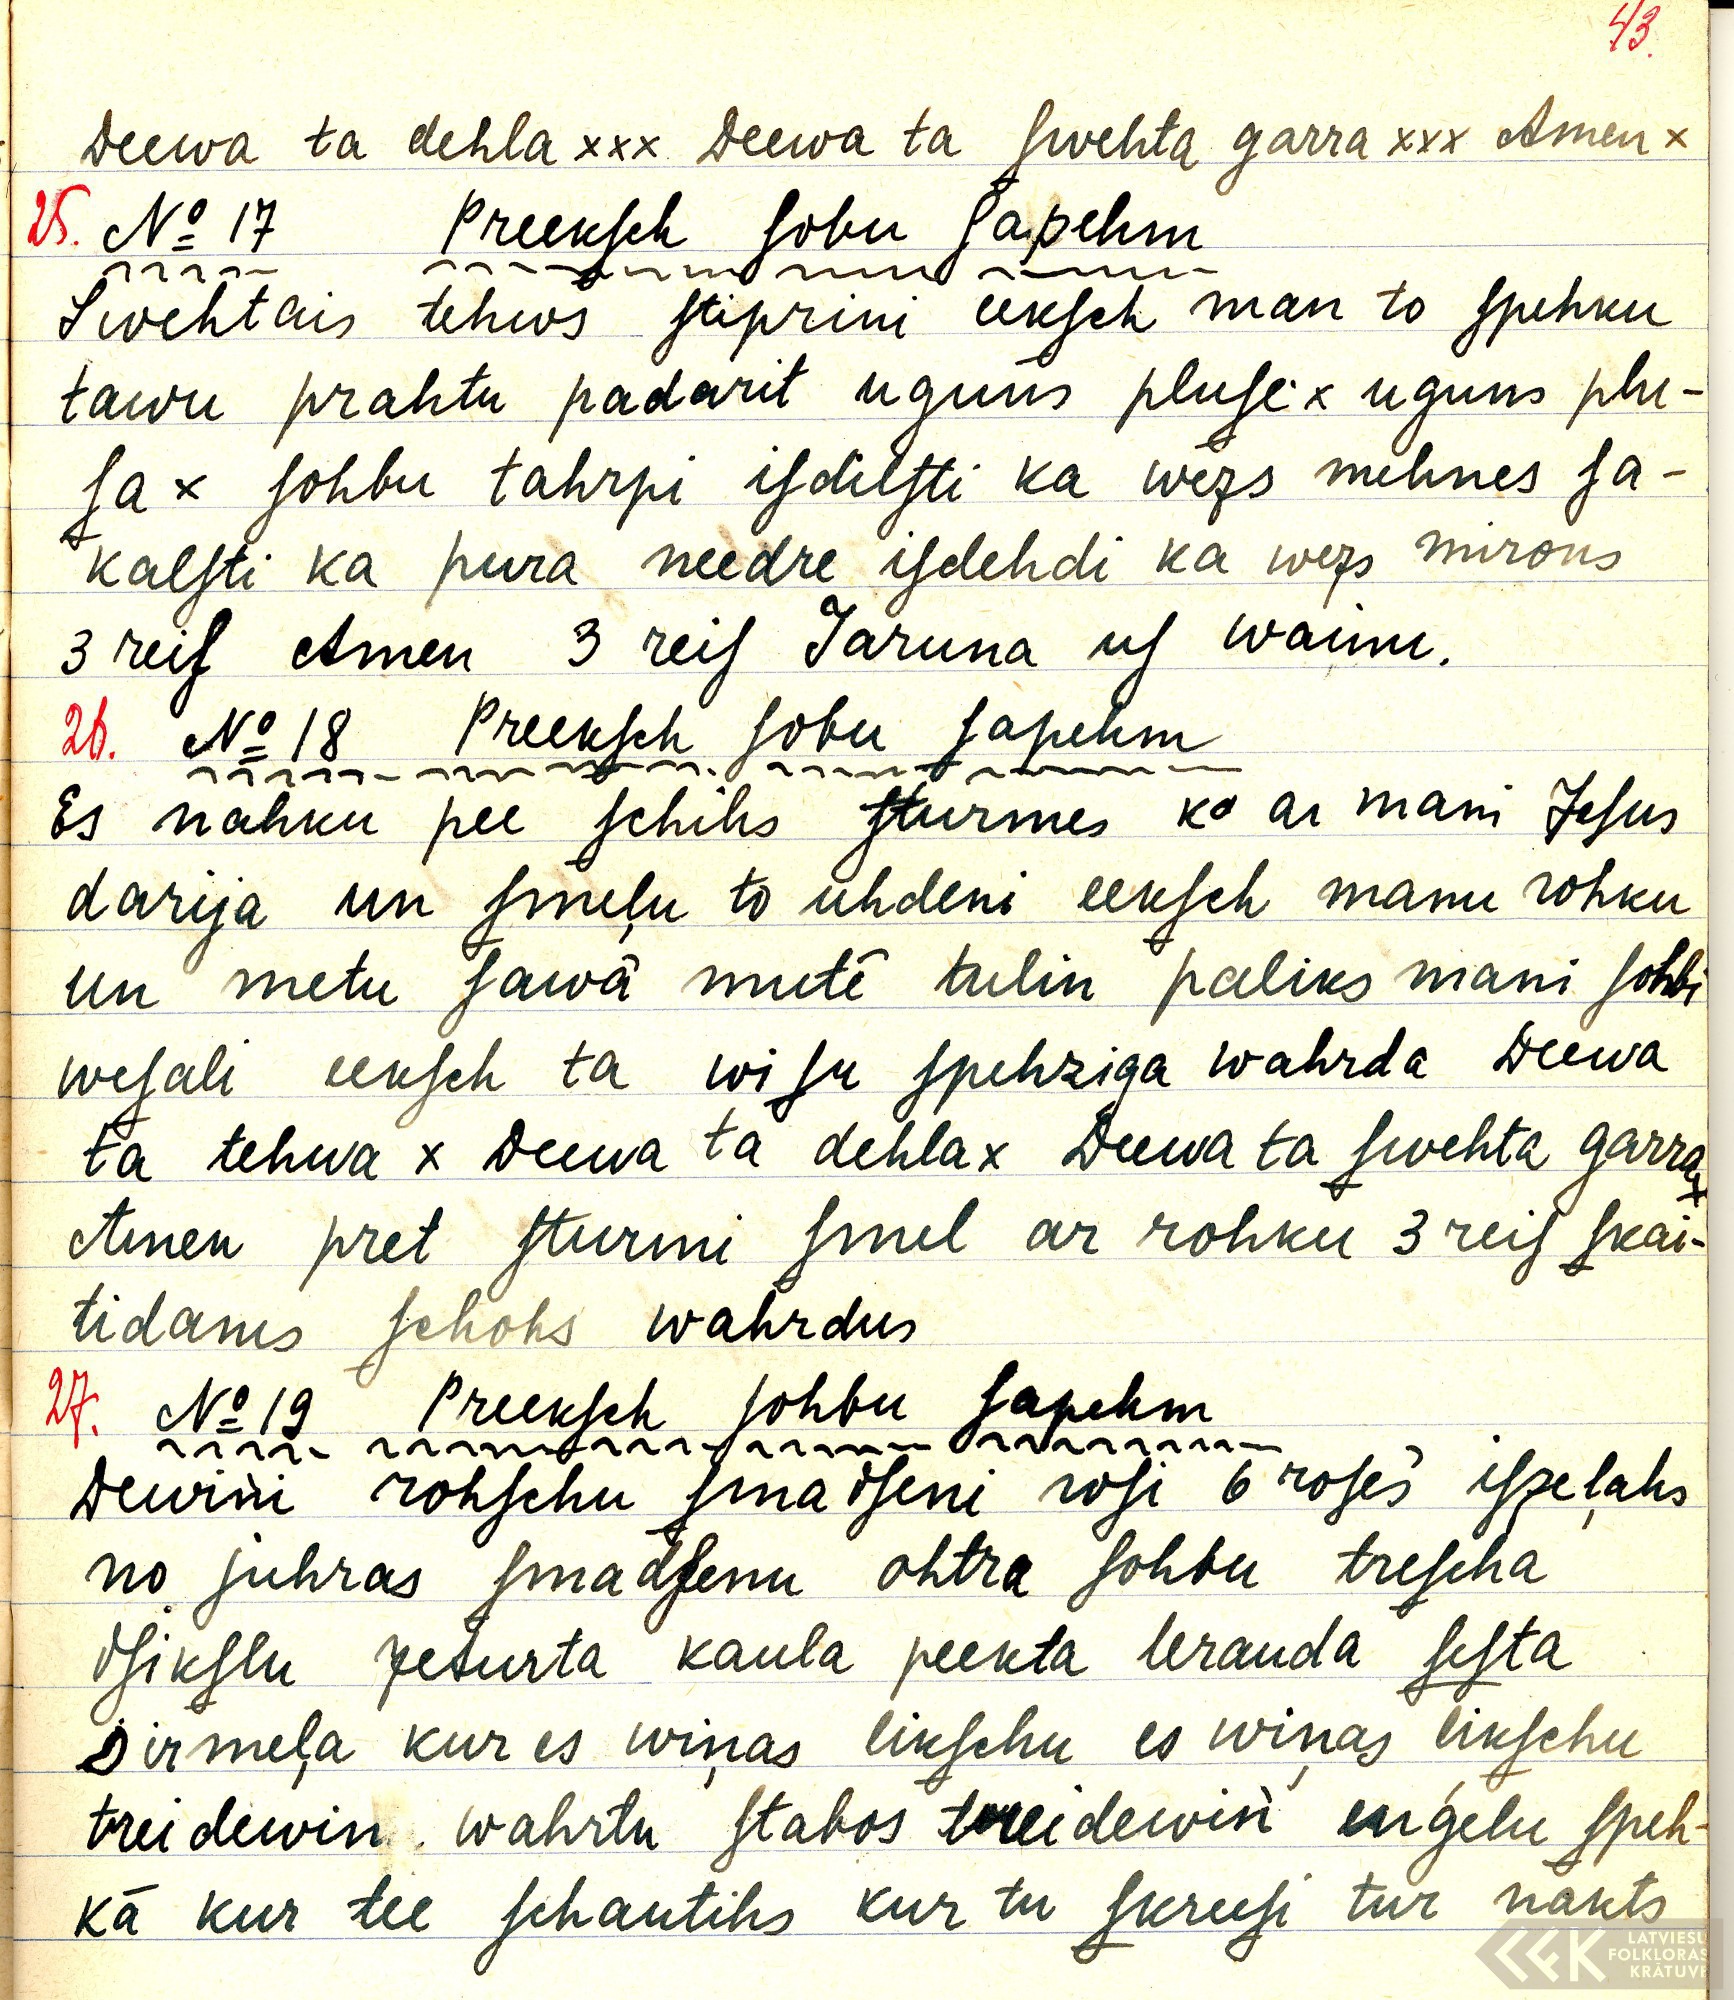 43.
Deewa ta dehla xxx Deewa ta ſwehta garra xxx Amen x
25. No 17 Preekſch ſobu ſapehm
Swehtais tehws ſtiprini eekſch man to ſpehku
tawu prahtu padarit uguns pluſe x uguns plu-
ſa x ſohbu tahrpi iſdilſti ka wezs mehnes ſa-
kalſti ka pura needre iſdehdi ka wezs mirons
3 reiſ Amen 3 reiſ Jaruna uſ wainu.
26. No 18 Preekſch ſobu ſapehm
Es nahku pee ſchihs ſturmes ko ar mani Jeſus
darija un ſmeļu to uhdeni eekſch manu rohku
un metu ſawā mutē tulin paliks mani ſohbi
weſali eekſch ta wiſu ſpehziga wahrda Deewa
ta tehwa x Deewa ta dehla x Deewa ta ſwehta garra x
Amen pret ſturmi ſmel ar rohku 3 reiſ ſkai-
tidams ſchohs wahrdus
27. No 19 Preekſch ſohbu ſapehm
Dewiņi rohſchu ſmadſeni roſi 6 roſes iſzeļahs
no juhras ſmadſenu ohtra ſohbu treſcha
dſikſlu zeturta kaula peekta leranda ſeſta
sirmeļa kur es wiņas likſchu es wiņas likſchu
trei dewiņ wahrtu ſtabos treidewiņ enģelu ſpeh-
kā kur tee ſchautihs kur tu ſkreeſi tur nakts
LATVIEŠU
FOLKLORAS
KRĀTUVE